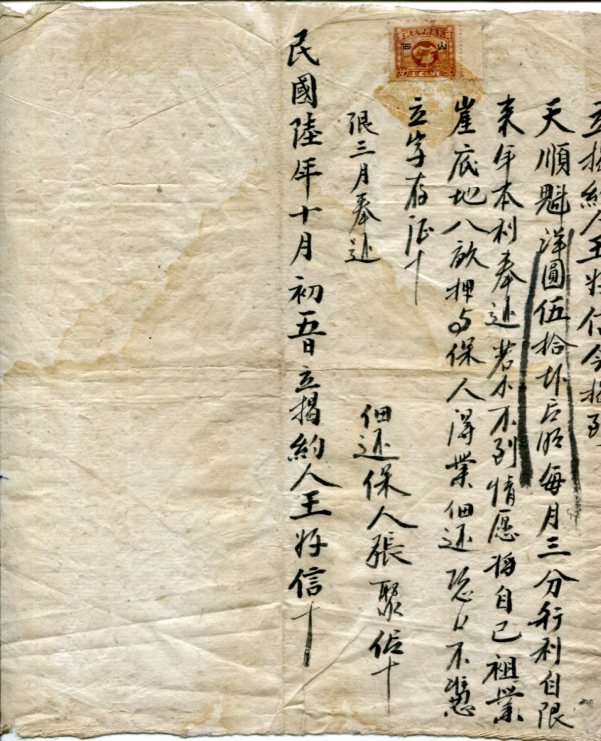 立揭約人王好信今揭到
天順魁洋圓伍拾塊后照每月三分行利自限
來年本利奉还若本不到情愿将自己祖業
崖底地八畝押与保人得業佃还恐口不憑
立字存证十
限三月奉还
佃还保人張聚佸十
民國陸年十月初五日立揭約人王好信十
山西